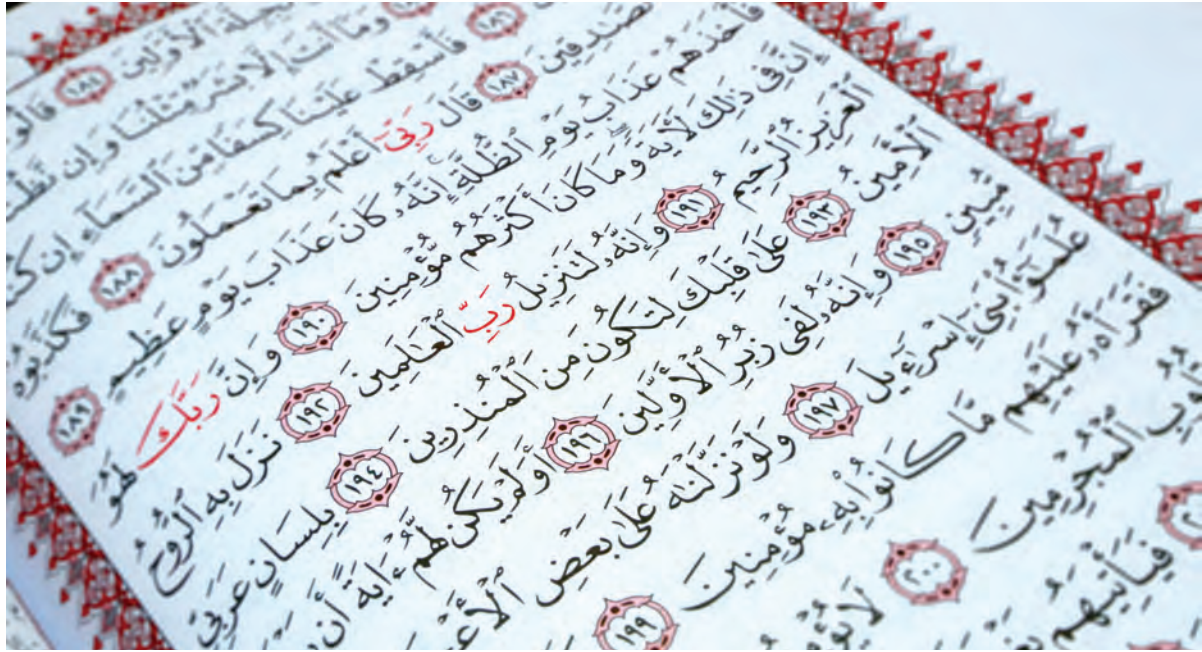 ٱلْأَوَّلِينَ ١٨٤
وَمَآ أَنتَ إِلَّا بَشَرٌ مِّثْلُنَا وَإِن
فَأَسْقِطْ عَلَيْنَا كِسَفًا مِّنَ ٱلسَّمَآءِ إِن
ٱلصَّٰدِقِينَ ١٨٧ قَالَ رَبِّىٓ أَعْلَمُ بِمَا تَعْمَلُونَ ١٨٨ فَكَذَّبُوهُ
فَأَخَذَهُمْ عَذَابُ يَوْمِ ٱلظُّلَّةِ إِنَّهُۥ كَانَ عَذَابَ يَوْمٍ عَظِيمٍ ١٨٩
إِنَّ فِى ذَٰلِكَ لَءَايَةً وَمَا كَانَ أَكْثَرُهُم مُّؤْمِنِينَ ١٩٠ وَإِنَّ رَبَّكَ لَهُوَ
ٱلْعَزِيزُ ٱلرَّحِيمُ ١٩١ وَإِنَّهُۥ لَتَنزِيلُ رَبِّ ٱلْعَٰلَمِينَ ١٩٢ نَزَلَ بِهِ ٱلرُّوحُ
ٱلْأَمِينُ ١٩٣ عَلَىٰ قَلْبِكَ لِتَكُونَ مِنَ ٱلْمُنذِرِينَ ١٩٤ بِلِسَانٍ عَرَبِىٍّ
مُّبِينٍ ١٩٥ وَإِنَّهُۥ لَفِى زُبُرِ ٱلْأَوَّلِينَ ١٩٦ أَوَلَمْ يَكُن لَّهُمْ ءَايَةً أَن
عُلَمَٰٓؤُا۟ بَنِىٓ إِسْرَٰٓءِيلَ ١٩٧ وَلَوْ نَزَّلْنَٰهُ عَلَىٰ بَعْضِ
فَقَرَأَهُۥ عَلَيْهِم مَّا كَانُوا۟ بِهِۦ مُؤْمِنِينَ ١٩٩
قُلُوبِ ٱلْمُجْرِمِينَ ٢٠٠ لَا
فَيَأْتِيَهُم